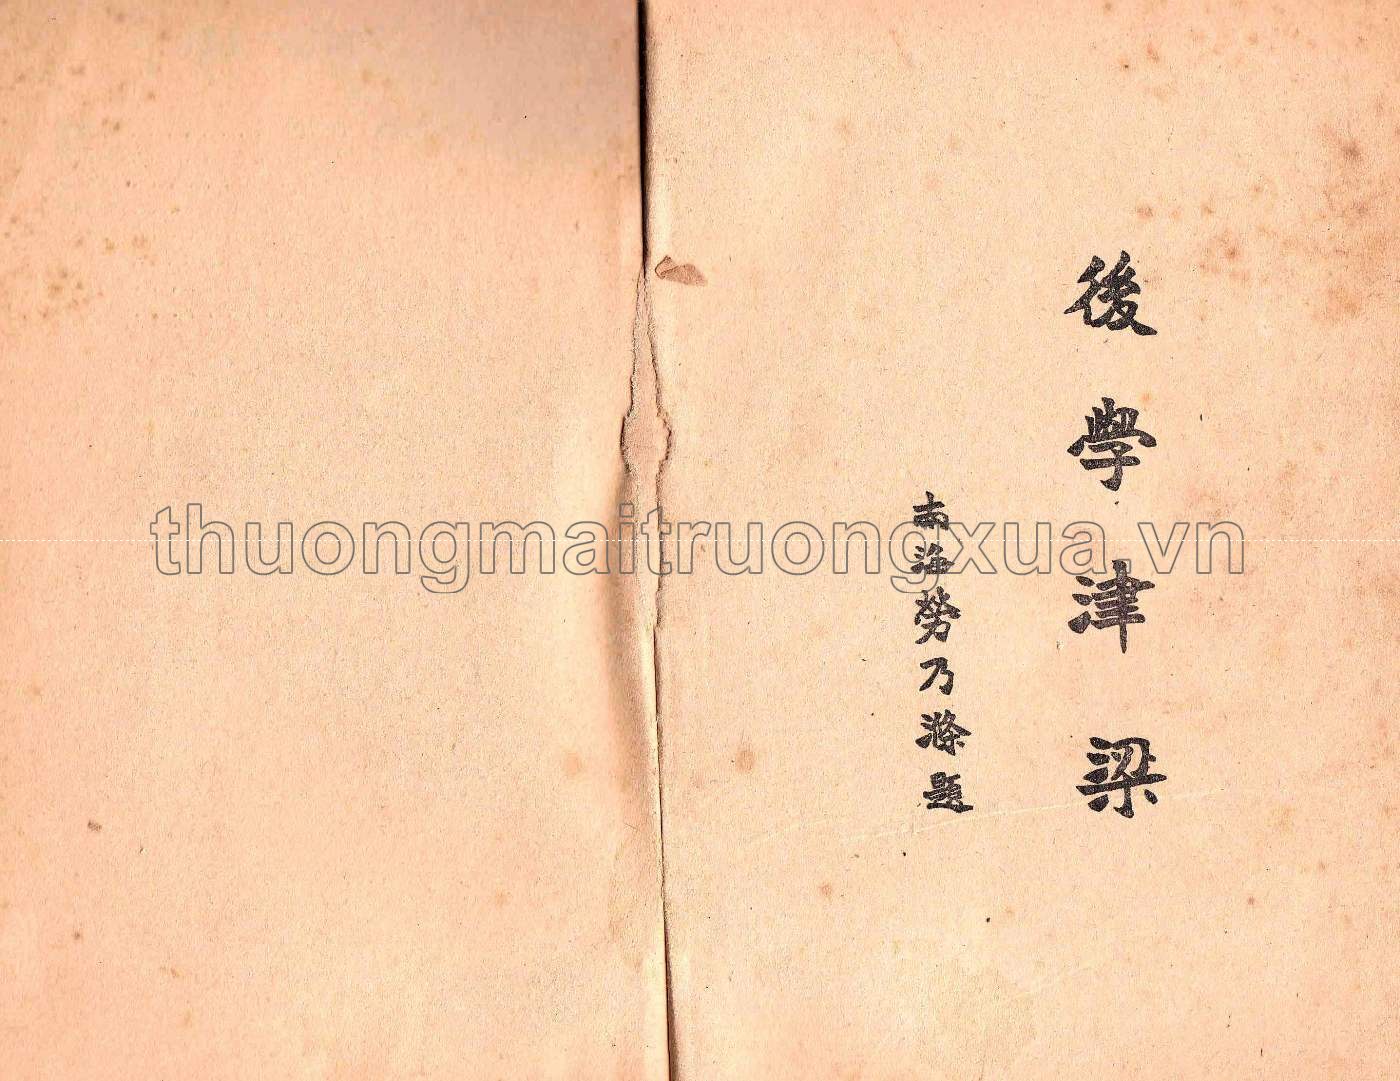 後學津梁
南海勞乃滌題
thuongmaitruongxua.vn